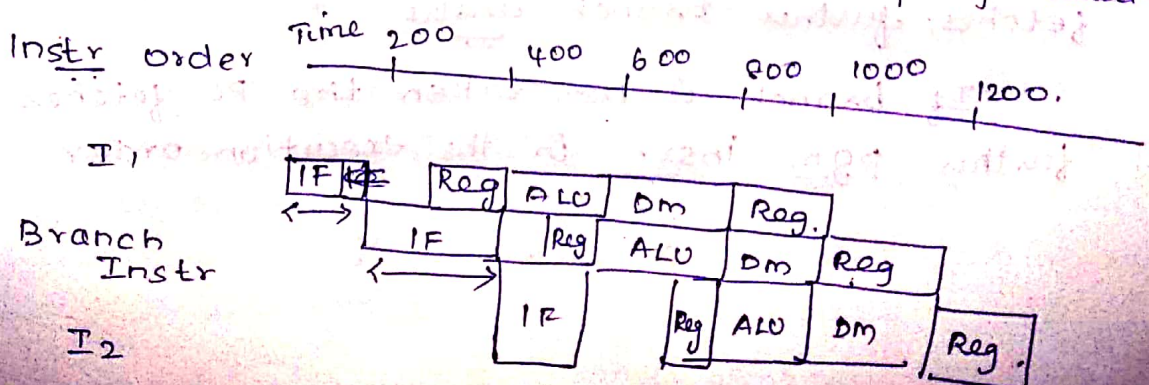 Instr order Time 200 400 600 800 1000 1200.
I1 IF Reg ALU Dm Reg.
Branch IF Reg ALU Dm Reg
Instr
I2 IF Reg ALU Dm Reg.